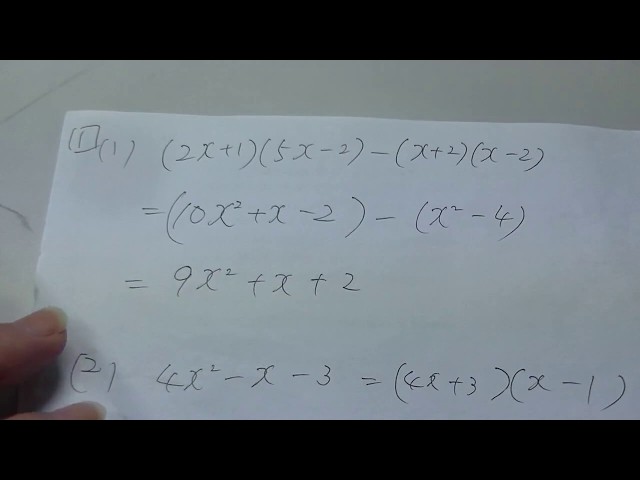 1 (1) (2x+1)(5x-2)-(x+2)(x-2)
=(10x²+x-2)-(x²-4)
= 9x²+x+2
(2) 4x²-x-3 =(4x+3)(x-1)